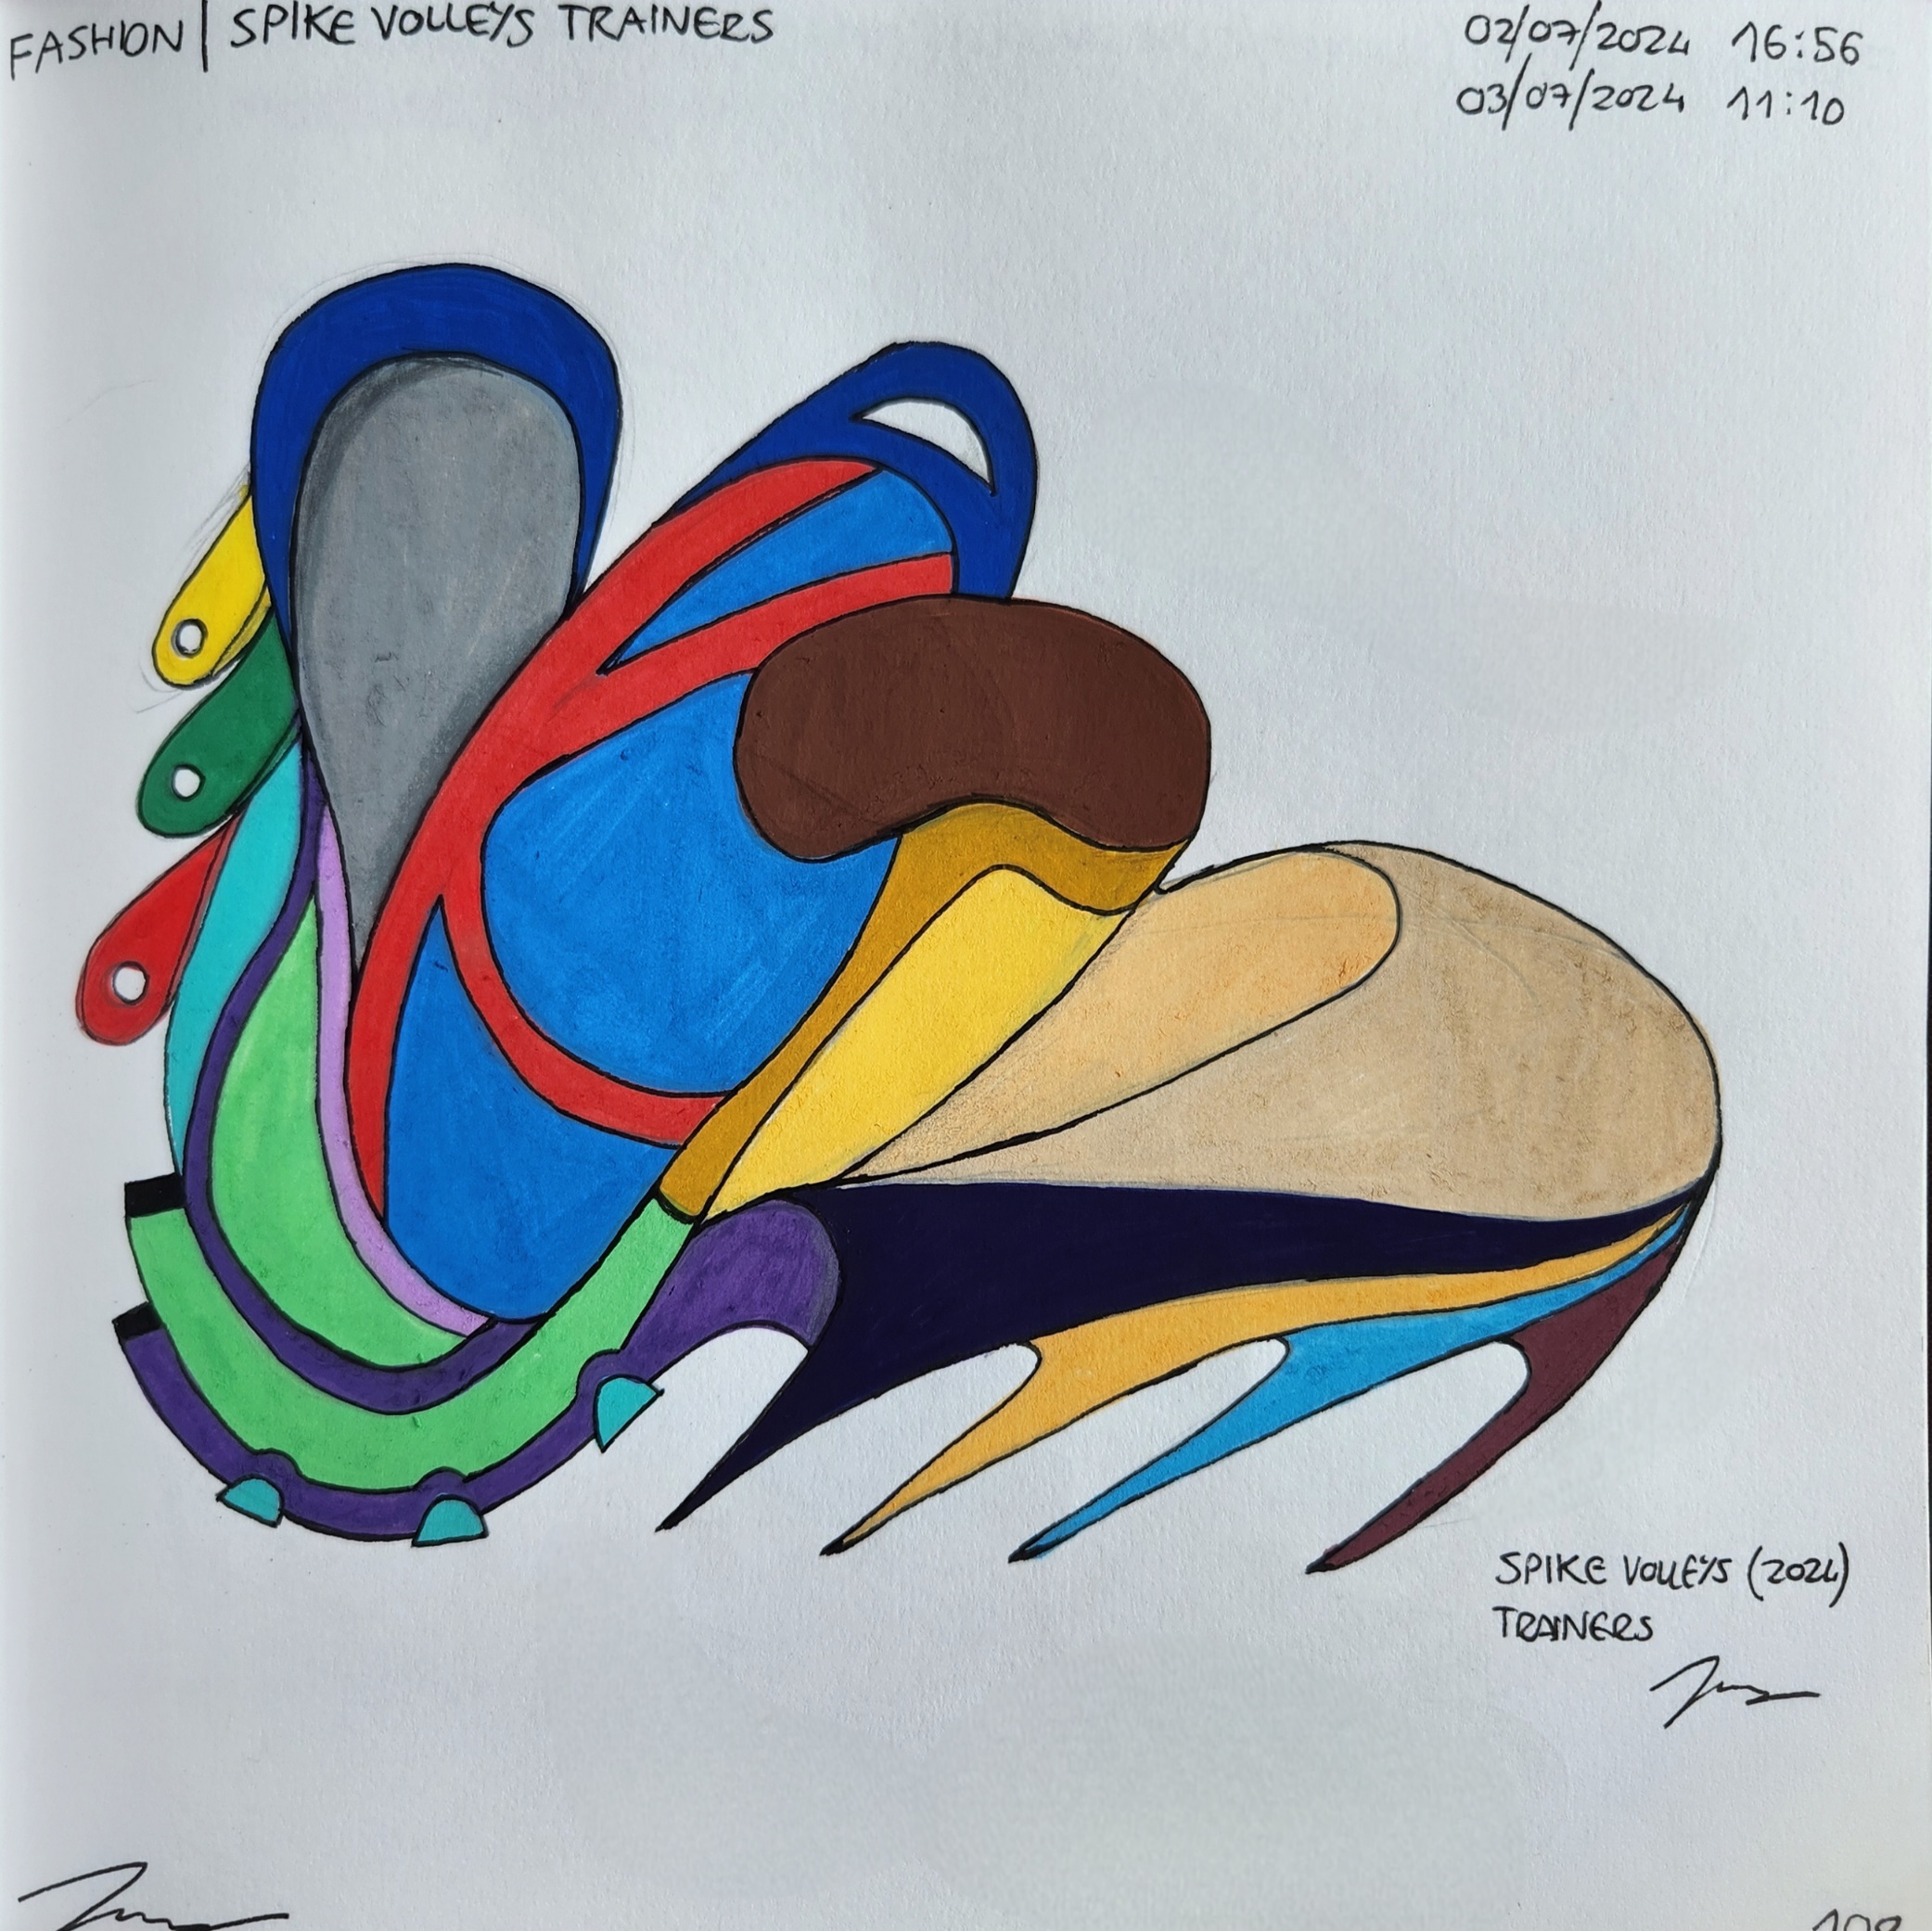 FASHION | SPIKE VOLLEYS TRAINERS
02/07/2024 16:56
03/07/2024 11:10
SPIKE VOLLEYS (2024)
TRAINERS